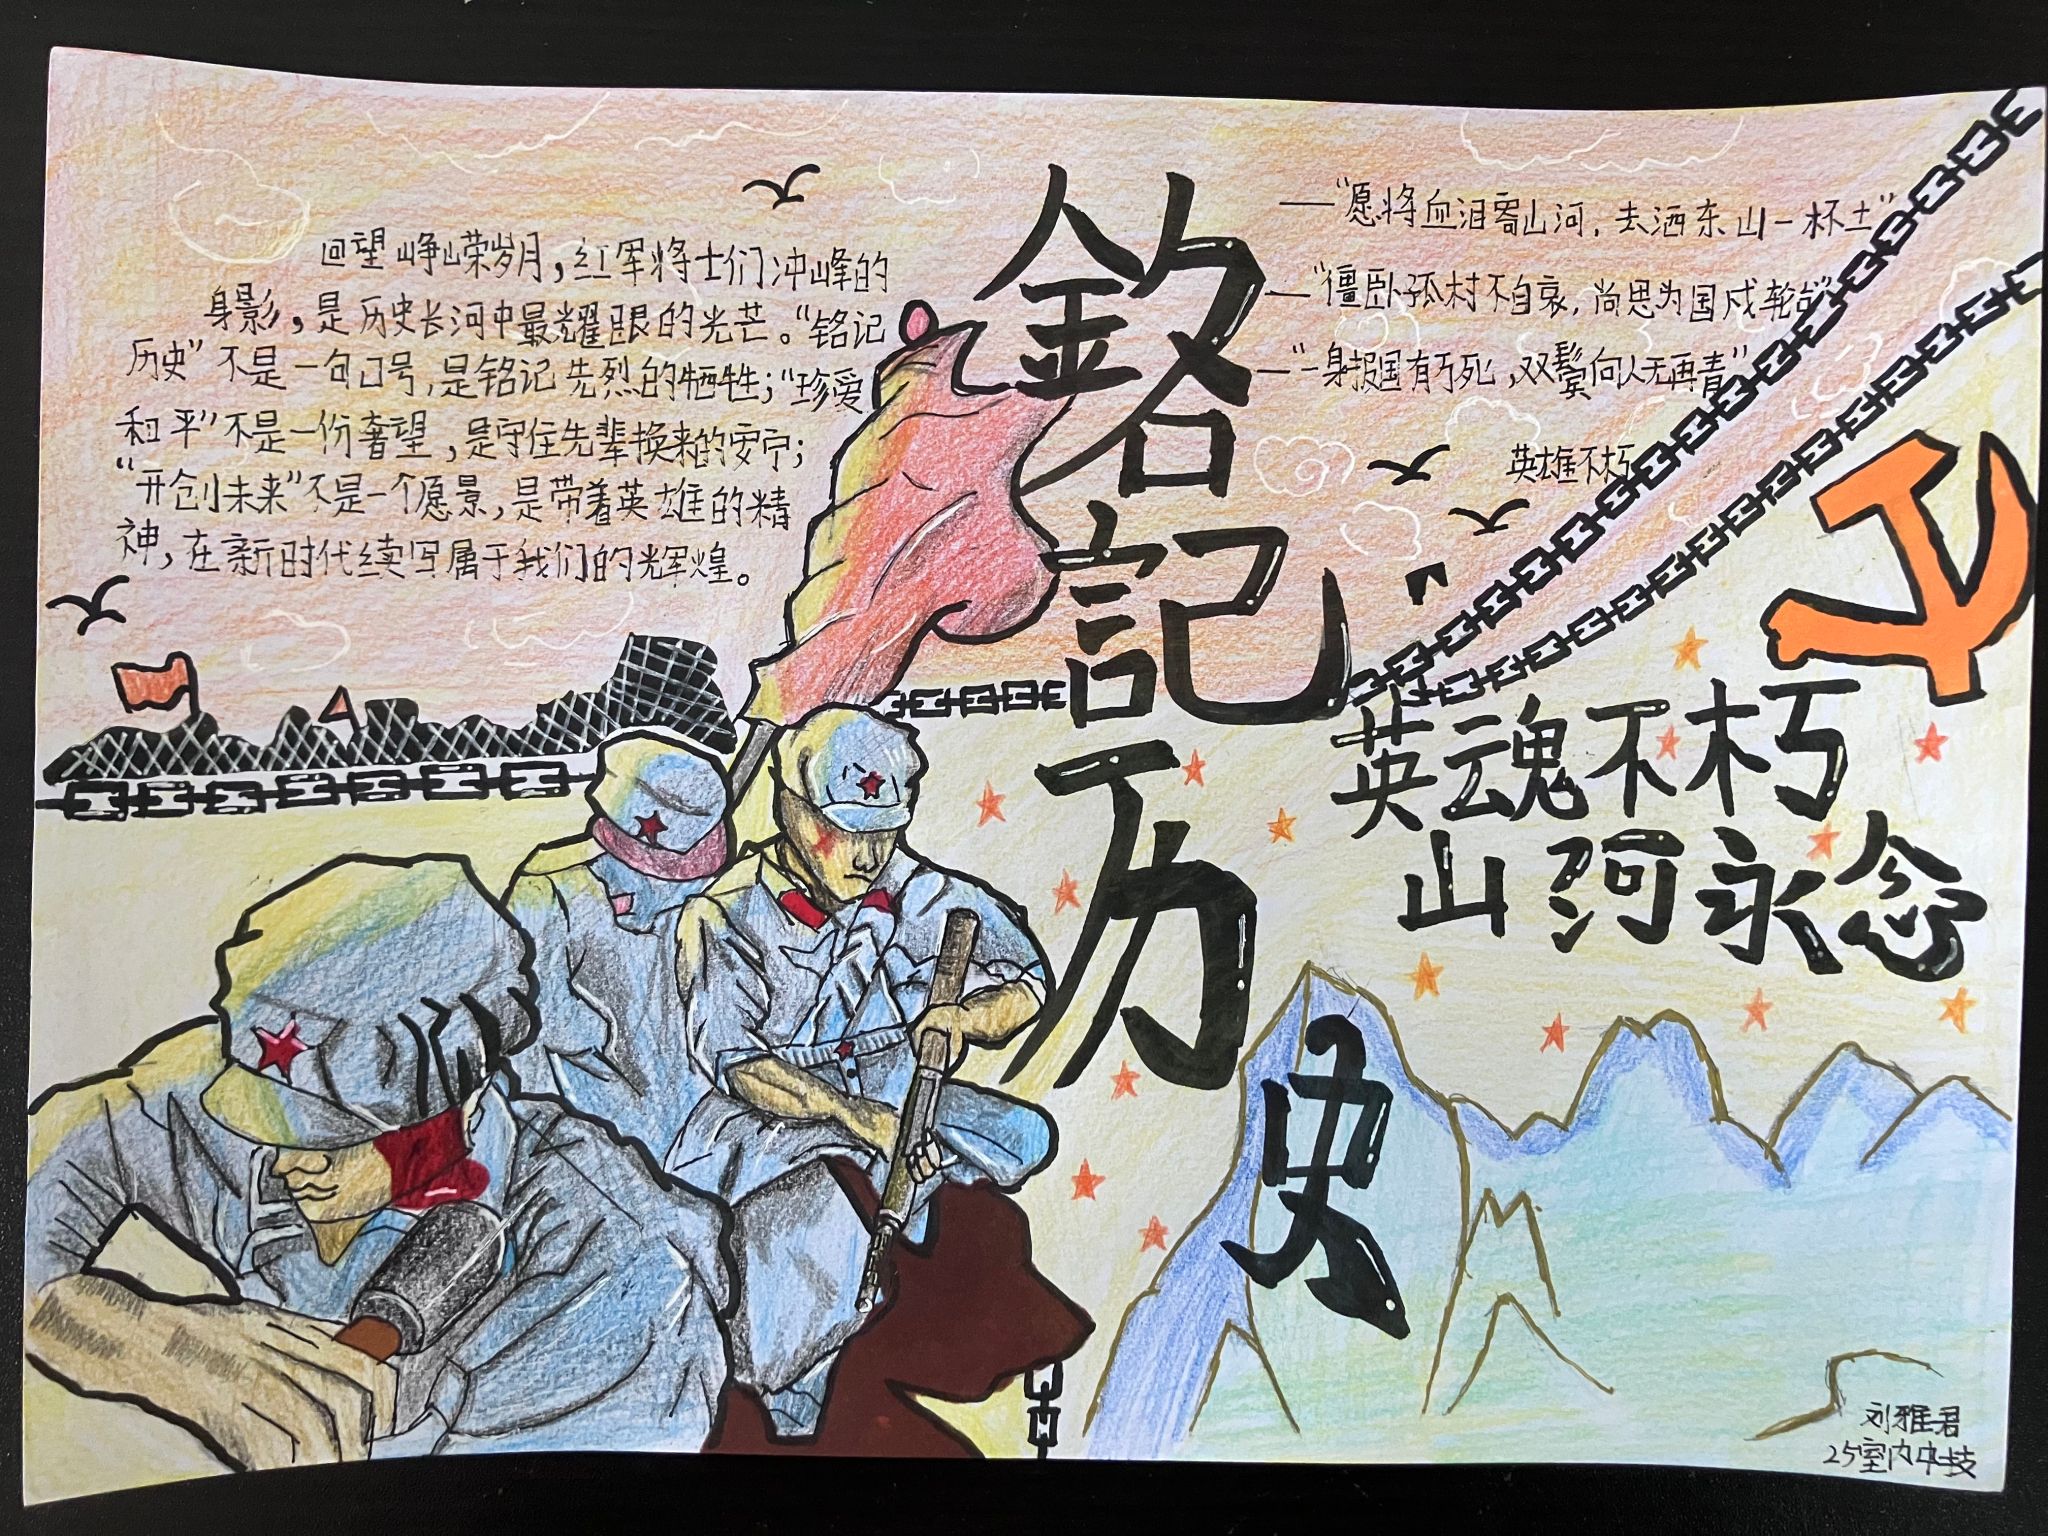 回望峥嵘岁月，红军将士们冲峰的
身影，是历史长河中最耀眼的光芒。“铭记
历史”不是一句口号，是铭记先烈的牺牲；“珍爱
和平”不是一份奢望，是守住先辈换来的安宁；
“开创未来”不是一个愿景，是带着英雄的精
神，在新时代续写属于我们的辉煌。
銘記历史
—“愿将血泪寄山河，去洒东山一抔土”
—“僵卧孤村不自哀，尚思为国戍轮台”
—“一身报国有万死，双鬓向人无再青”
英雄不朽
英魂不朽
山河永念
刘雅君
25室内中技